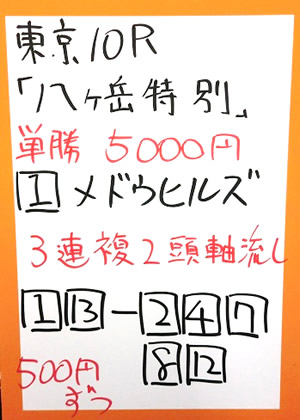 東京10R
「八ヶ岳特別」
単勝 5000円
1 メドウヒルズ
3連複2頭軸流し
1 13 - 2 4 7
8 12
500円
ずつ